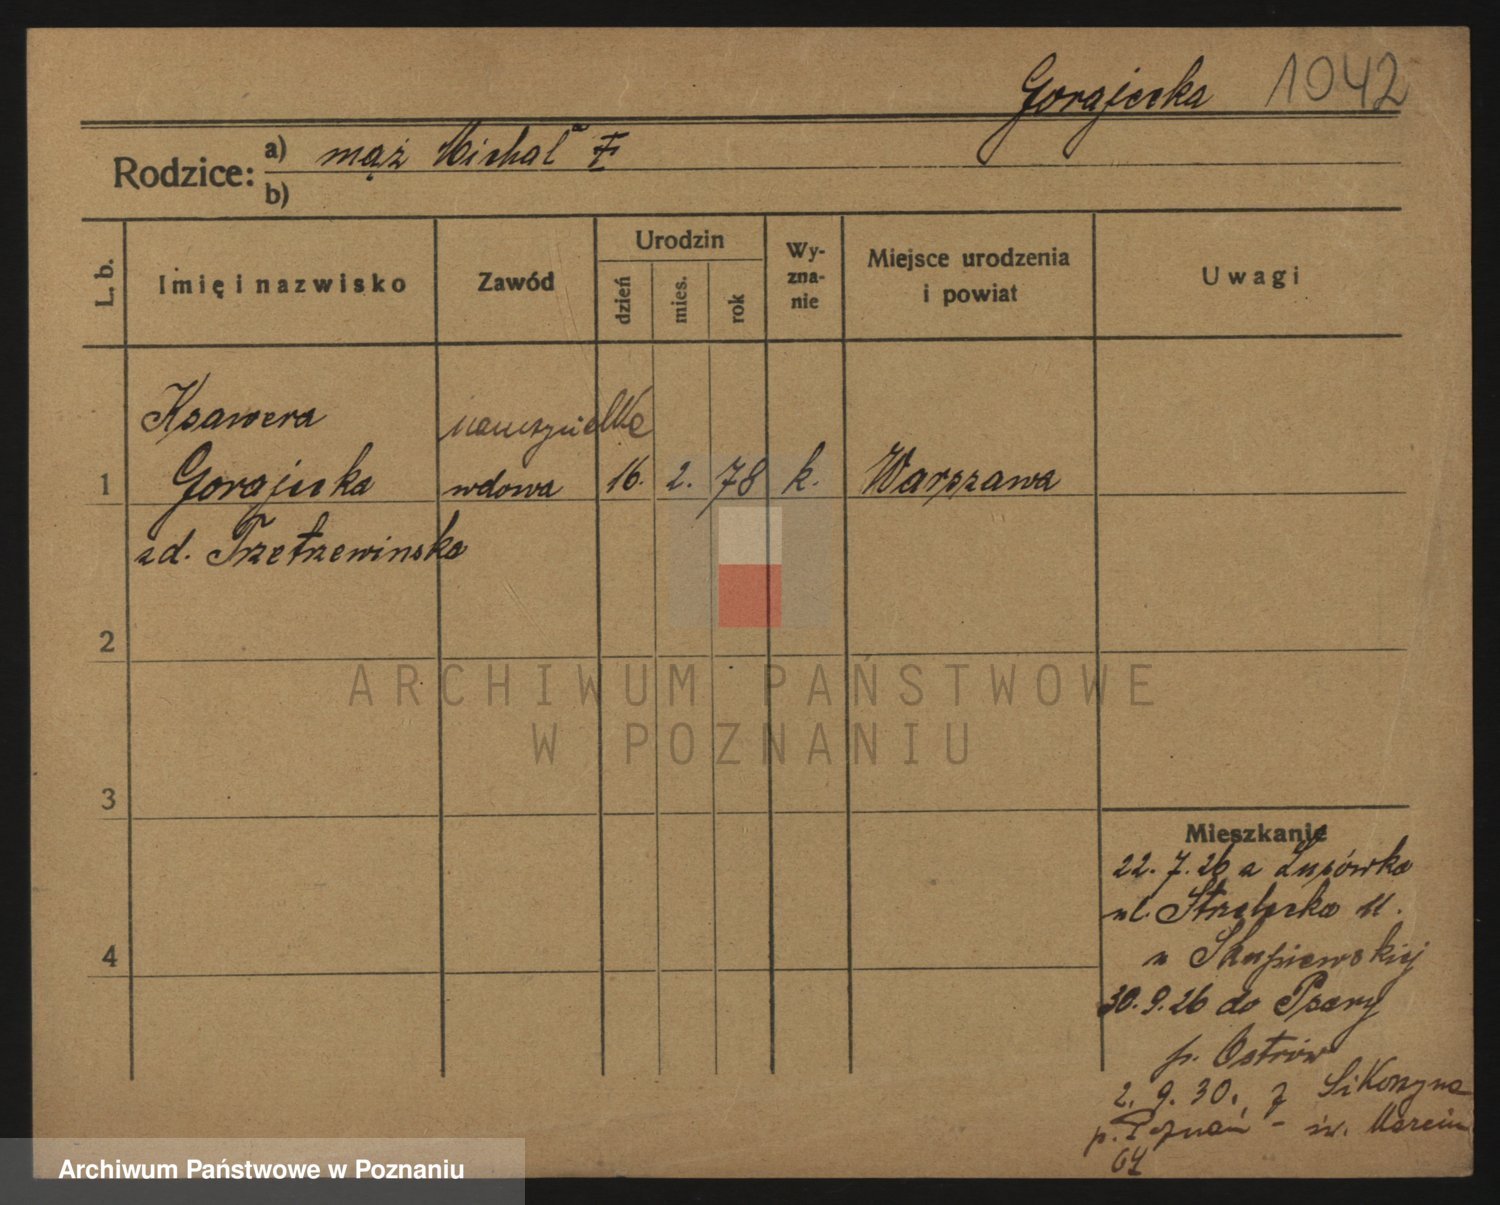 Gorajecka 1942
Rodzice: a) mąż Michał
b)
L. b.
Imię i nazwisko
Zawód
Urodzin
dzień
mies.
rok
Wy-
zna-
nie
Miejsce urodzenia
i powiat
Uwagi
Ksawera
nauczycielka
1 Gorajecka wdowa 16. 2. 78 k. Warszawa
zd. Trzetrzewinska
2
3
4
Mieszkanie
22. 7. 26 z
ul. Strzelecka 11.
u
30. 9. 26 do Psary
p. Ostrów
2. 9. 30. z
p. Poznań - św. Marcin
64
ARCHIWUM PAŃSTWOWE
W POZNANIU
Archiwum Państwowe w Poznaniu